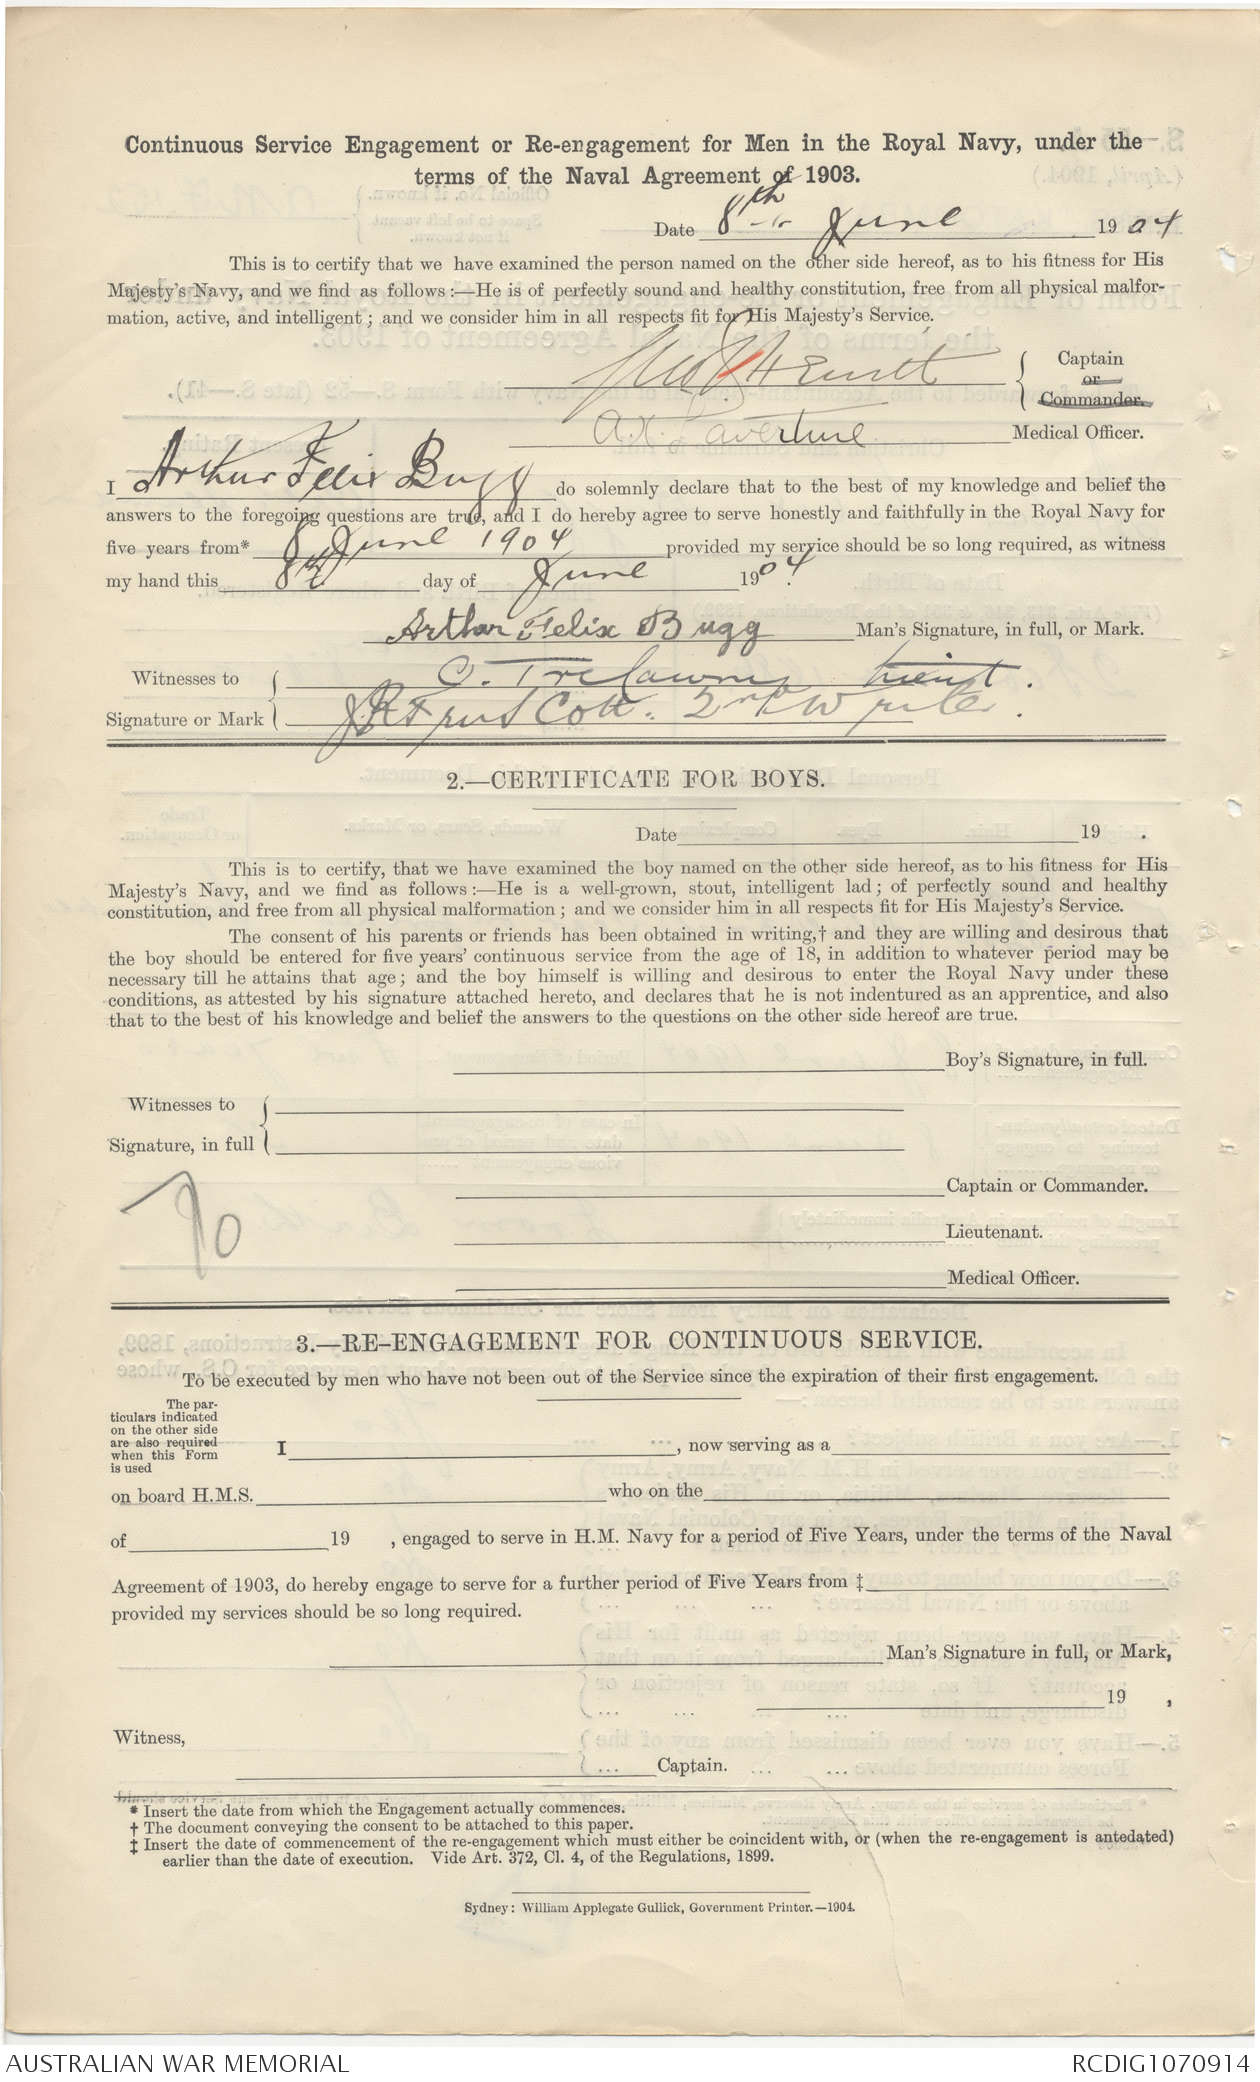 Continuous Service Engagement or Re-engagement for Men in the Royal Navy, under the
terms of the Naval Agreement of 1903.
Date 8th June 1904
This is to certify that we have examined the person named on the other side hereof, as to his fitness for His
Majesty's Navy, and we find as follows:—He is of perfectly sound and healthy constitution, free from all physical malfor-
mation, active, and intelligent; and we consider him in all respects fit for His Majesty's Service.
Captain
or
Commander.
Medical Officer.
I Arthur Felix Bugg do solemnly declare that to the best of my knowledge and belief the
answers to the foregoing questions are true, and I do hereby agree to serve honestly and faithfully in the Royal Navy for
five years from* 8 June 1904 provided my service should be so long required, as witness
my hand this 8th day of June 1904.
Arthur Felix Bugg Man's Signature, in full, or Mark.
Witnesses to C. Trelawny Lieut.
Signature or Mark 2nd Writer.
2.—CERTIFICATE FOR BOYS.
Date 19 .
This is to certify, that we have examined the boy named on the other side hereof, as to his fitness for His
Majesty's Navy, and we find as follows:—He is a well-grown, stout, intelligent lad; of perfectly sound and healthy
constitution, and free from all physical malformation; and we consider him in all respects fit for His Majesty's Service.
The consent of his parents or friends has been obtained in writing,† and they are willing and desirous that
the boy should be entered for five years' continuous service from the age of 18, in addition to whatever period may be
necessary till he attains that age; and the boy himself is willing and desirous to enter the Royal Navy under these
conditions, as attested by his signature attached hereto, and declares that he is not indentured as an apprentice, and also
that to the best of his knowledge and belief the answers to the questions on the other side hereof are true.
Boy's Signature, in full.
Witnesses to
Signature, in full
Captain or Commander.
Lieutenant.
Medical Officer.
3.—RE-ENGAGEMENT FOR CONTINUOUS SERVICE.
To be executed by men who have not been out of the Service since the expiration of their first engagement.
The par-
ticulars indicated
on the other side
are also required
when this Form
is used
I , now serving as a
on board H.M.S. who on the
of 19 , engaged to serve in H.M. Navy for a period of Five Years, under the terms of the Naval
Agreement of 1903, do hereby engage to serve for a further period of Five Years from ‡
provided my services should be so long required.
Man's Signature in full, or Mark,
19 ,
Witness,
Captain.
* Insert the date from which the Engagement actually commences.
† The document conveying the consent to be attached to this paper.
‡ Insert the date of commencement of the re-engagement which must either be coincident with, or (when the re-engagement is antedated)
earlier than the date of execution. Vide Art. 372, Cl. 4, of the Regulations, 1899.
Sydney: William Applegate Gullick, Government Printer.—1904.
AUSTRALIAN WAR MEMORIAL
RCDIG1070914